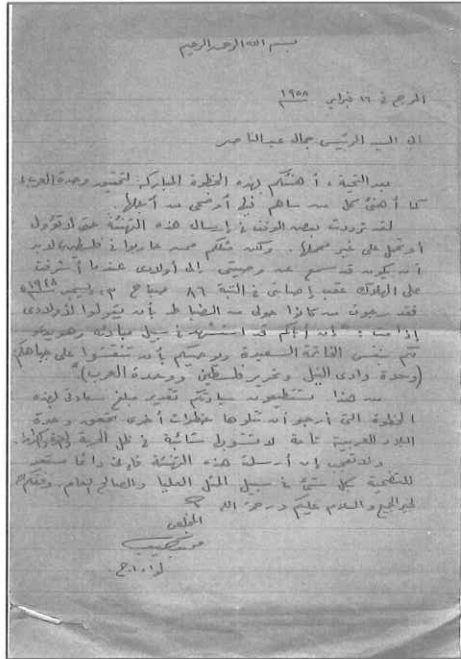 بسم الله الرحمن الرحيم
المرج في ١٦ فبراير ١٩٥٨
إلى السيد الرئيس جمال عبد الناصر
بعد التحية، أهنئكم بهذه الخطوة المباركة لتحقيق وحدة العرب
كما أهنئ كل من ساهم فيها أو ضحى من أجلها
لقد ترددت بعض الوقت في إرسال هذه التهنئة حتى لا تؤول
أو تحمل على غير محملها. ولكن مثلكم ممن حاربوا في فلسطين لابد
أن يكون قد سمع عن وصيتي إلى أولادي عندما أشرفت
على الهلاك عقب إصابتي في التبة ٨٦ صباح ٢٣ ديسمبر ١٩٤٨
فقد رجوت من كانوا حولي من الضباط بأن يقولوا لأولادي
إذا مت: "أن أباكم قد استشهد في سبيل مبادئه وهو يرجو
لكم نفس الخاتمة السعيدة ويوصيكم بأن تنقشوا على جباهكم
(وحدة وادي النيل وتحرير فلسطين ووحدة العرب)"
من هذا تستطيعون سيادتكم تقدير مبلغ سعادتي بهذه
الخطوة التي أرجو أن تتلوها خطوات أخرى تحقق وحدة
البلاد العربية تامة لا تشوبها شائبة في ظل الحرية
ولا تعجب إن أرسلت هذه التهنئة فإني دائما مستعد
للتضحية بكل شيء في سبيل المثل العليا والصالح العام. وفقكم الله
لخير الجميع والسلام عليكم ورحمة الله
المخلص
محمد نجيب
لواء أ.ح.